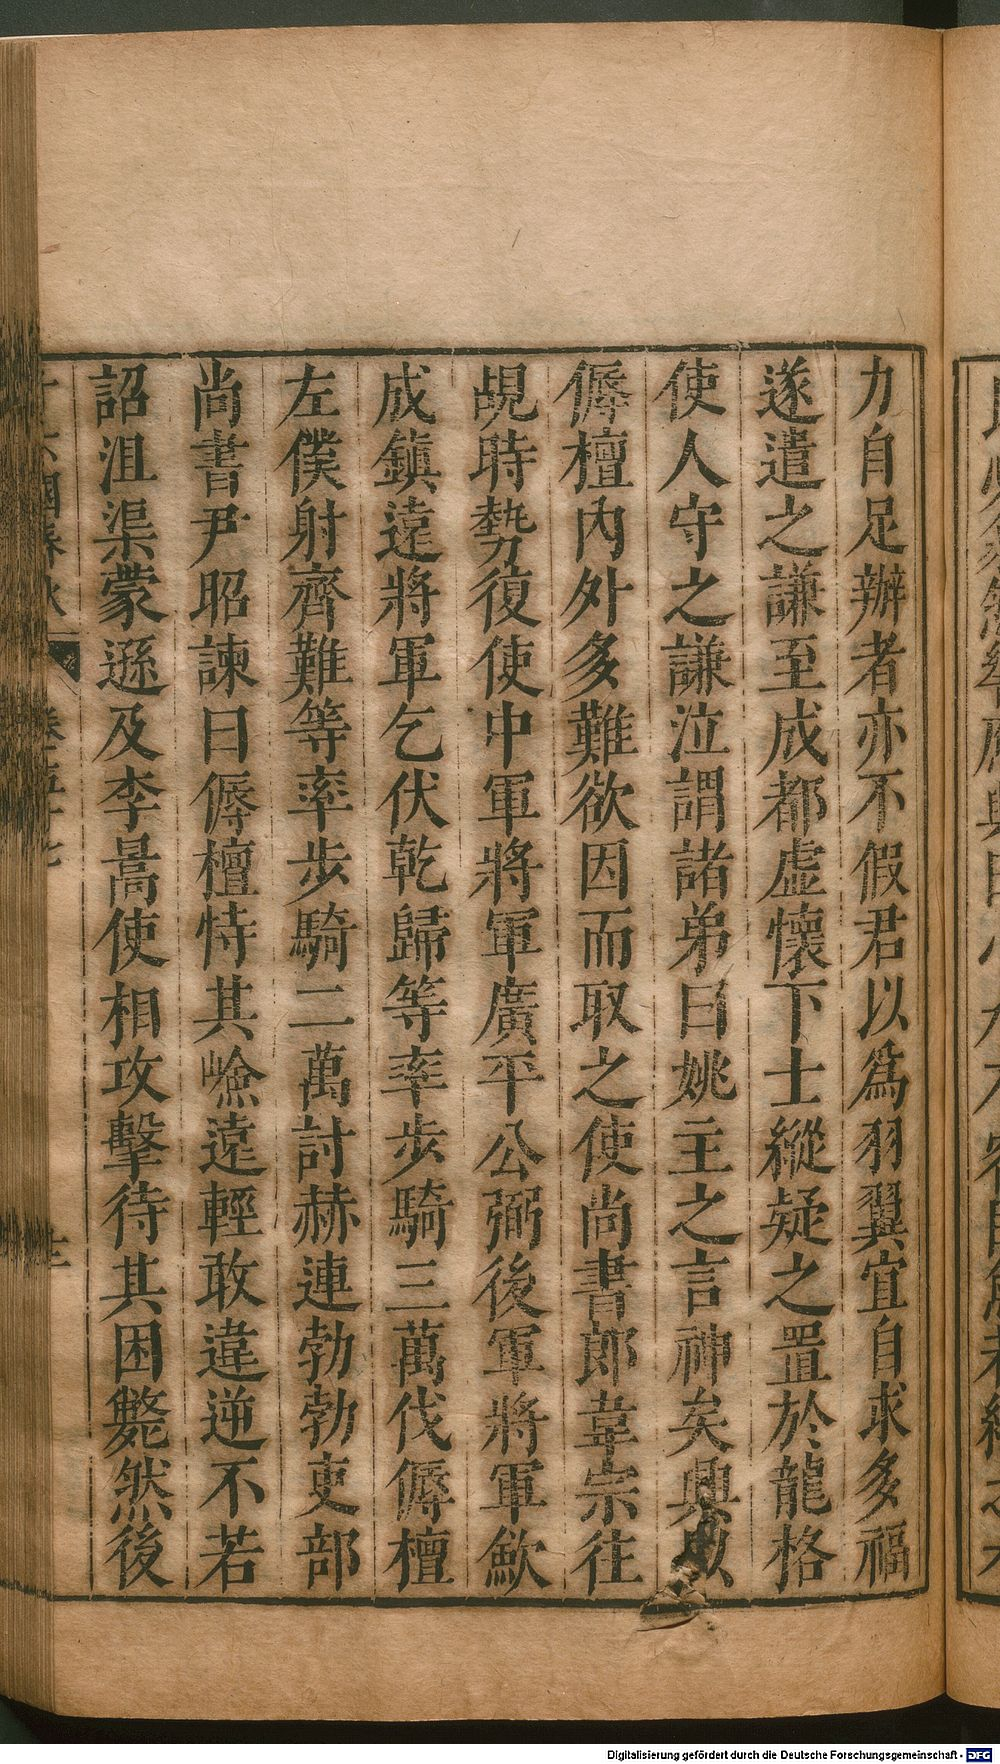 力自足辦者亦不假君以爲羽翼宜自求多福
遂遣之謙至成都虛懷下士縱疑之置於龍格
使人守之謙泣謂諸弟曰姚主之言神矣興以
傉檀內外多難欲因而取之使尚書郎韋宗往
覘時勢復使中軍將軍廣平公弼後軍將軍歛
成鎮遠將軍乞伏乾歸等率步騎三萬伐傉檀
左僕射齊難等率步騎二萬討赫連勃勃吏部
尚書尹昭諫曰傉檀恃其嶮遠輕敢違逆不若
詔沮渠蒙遜及李暠使相攻擊待其困斃然後
Digitalisierung gefördert durch die Deutsche Forschungsgemeinschaft - DFG